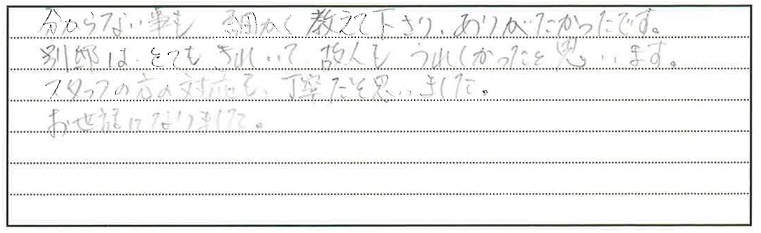 分からない事も 細かく教えて下さり、ありがたかったです。
別邸は、とても きれいで 故人も うれしかったと思います。
スタッフの方の対応も、丁寧だと思いました。
お世話になりました。